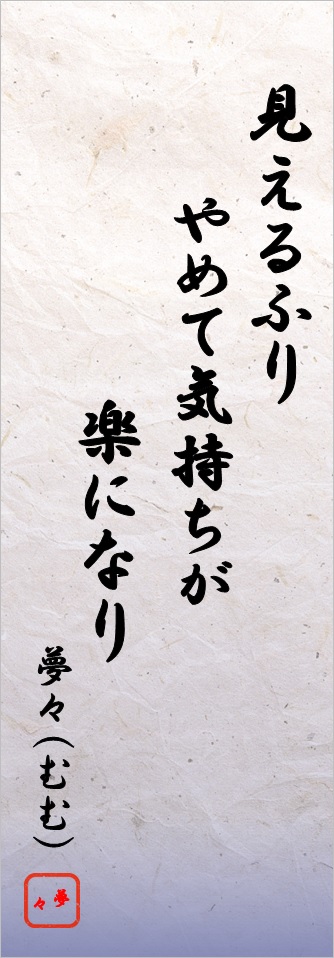 見えるふり
やめて気持ちが
楽になり
夢々（むむ）
夢々